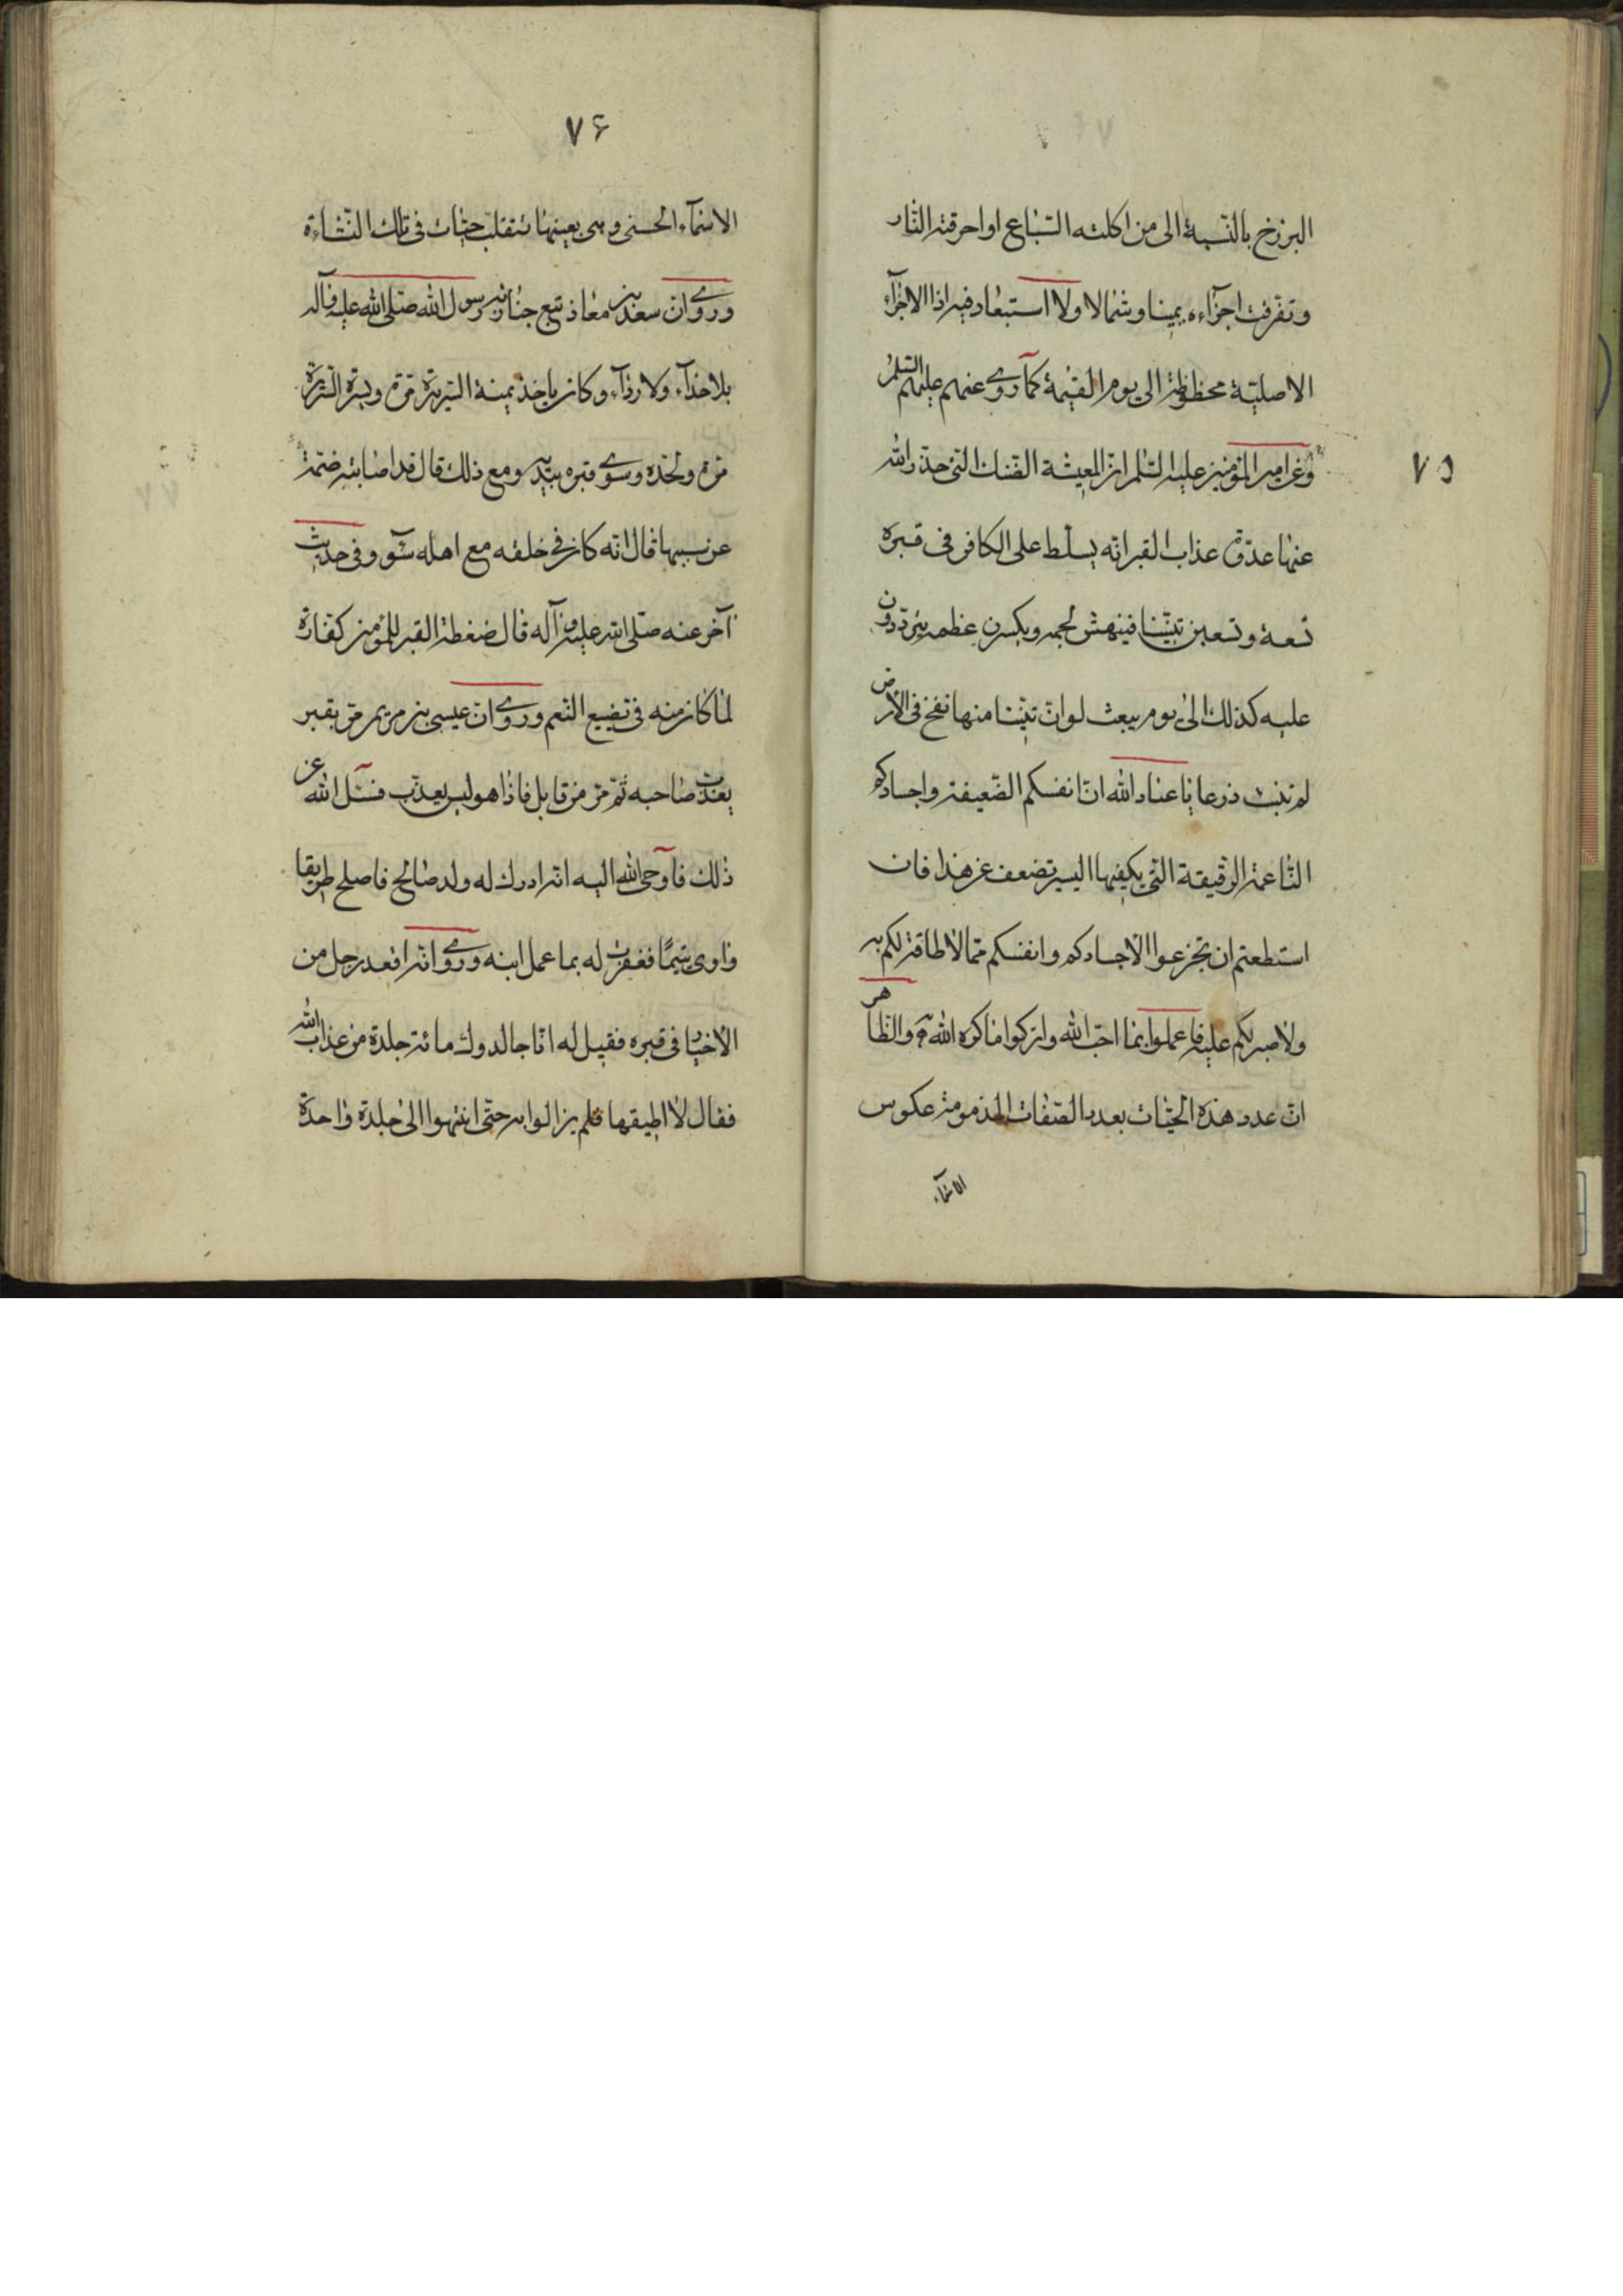 البرزخ بالنسبة الى من اكلته السباع او احرقته النار
وتفرقت اجزاءه يمينا وشمالا ولا استبعاد فيه اذا الاجزاء
الاصلية محفوظة الى يوم القيمة كما روى عنهم عليهم السلم
وعن امير المؤمنين عليه السلم ان المعيشة الضنك التى حذر الله
٧٥
عنها عدوه عذاب القبر انه يسلط على الكافر فى قبره
تسعة وتسعين تنينا فينهش لحمه ويكسرن عظمه يترددون
عليه كذلك الى يوم يبعث لو ان تنينا منها نفخ فى الارض
لم تنبت ذرعا يا عباد الله ان انفسكم الضعيفة واجسادكم
الناعمة الرقيقة التى يكفيها اليسير تضعف عن هذا فان
استطعتم ان تجزعوا الاجسادكم وانفسكم مما لا طاقة لكم به
ولا صبر لكم عليه فاعملوا بما احب الله واتركوا ما كره الله والظاهر
ان عدد هذه الحيات بعدد الصفات المذمومة عكوس
الاسماء
٧۶
الاسماء الحسنى وهى بعينها تنقلب حيات فى تلك النشاءة
وروى ان سعد بن معاذ تبع جنازته رسول الله صلى الله عليه وآله
بلا حذاء ولا رداء وكان ياخذ يمنة السرير مرة ويسرة السرير
مرة ولحده وسوى قبره بيديه ومع ذلك قال قد اصابته ضمة
عن سببها قال انه كان فى خلقه مع اهله سوء وفى حديث
آخر عنه صلى الله عليه وآله قال ضغطة القبر للمؤمن كفارة
لما كان منه فى تضييع النعم وروى ان عيسى بن مريم مر بقبر
يعذب صاحبه ثم مر من قابل فاذا هو ليس يعذب فسئل الله عن
ذلك فاوحى الله اليه انه ادرك له ولد صالح فاصلح طريقا
واوى يتيما فغفرت له بما عمل ابنه وروى انه اقعد رجل من
الاخيار فى قبره فقيل له انا جالدوك مائة جلدة من عذاب الله
فقال لا اطيقها فلم يزالوا به حتى انتهوا الى جلدة واحدة